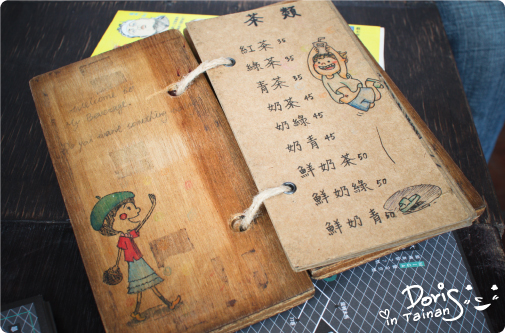 welcome to
my beverage.
do you want something
茶類
紅茶 35
綠茶 35
青茶 35
奶茶 45
奶綠 45
奶青 45
鮮奶茶 50
鮮奶綠 50
鮮奶青 50
Doris
in Tainan